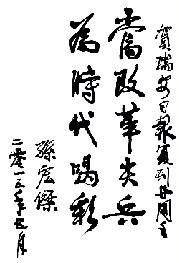 賀瑞安日報復刊廿周年
當改革尖兵
為時代喝彩
孫宏傑
二零一三年
月